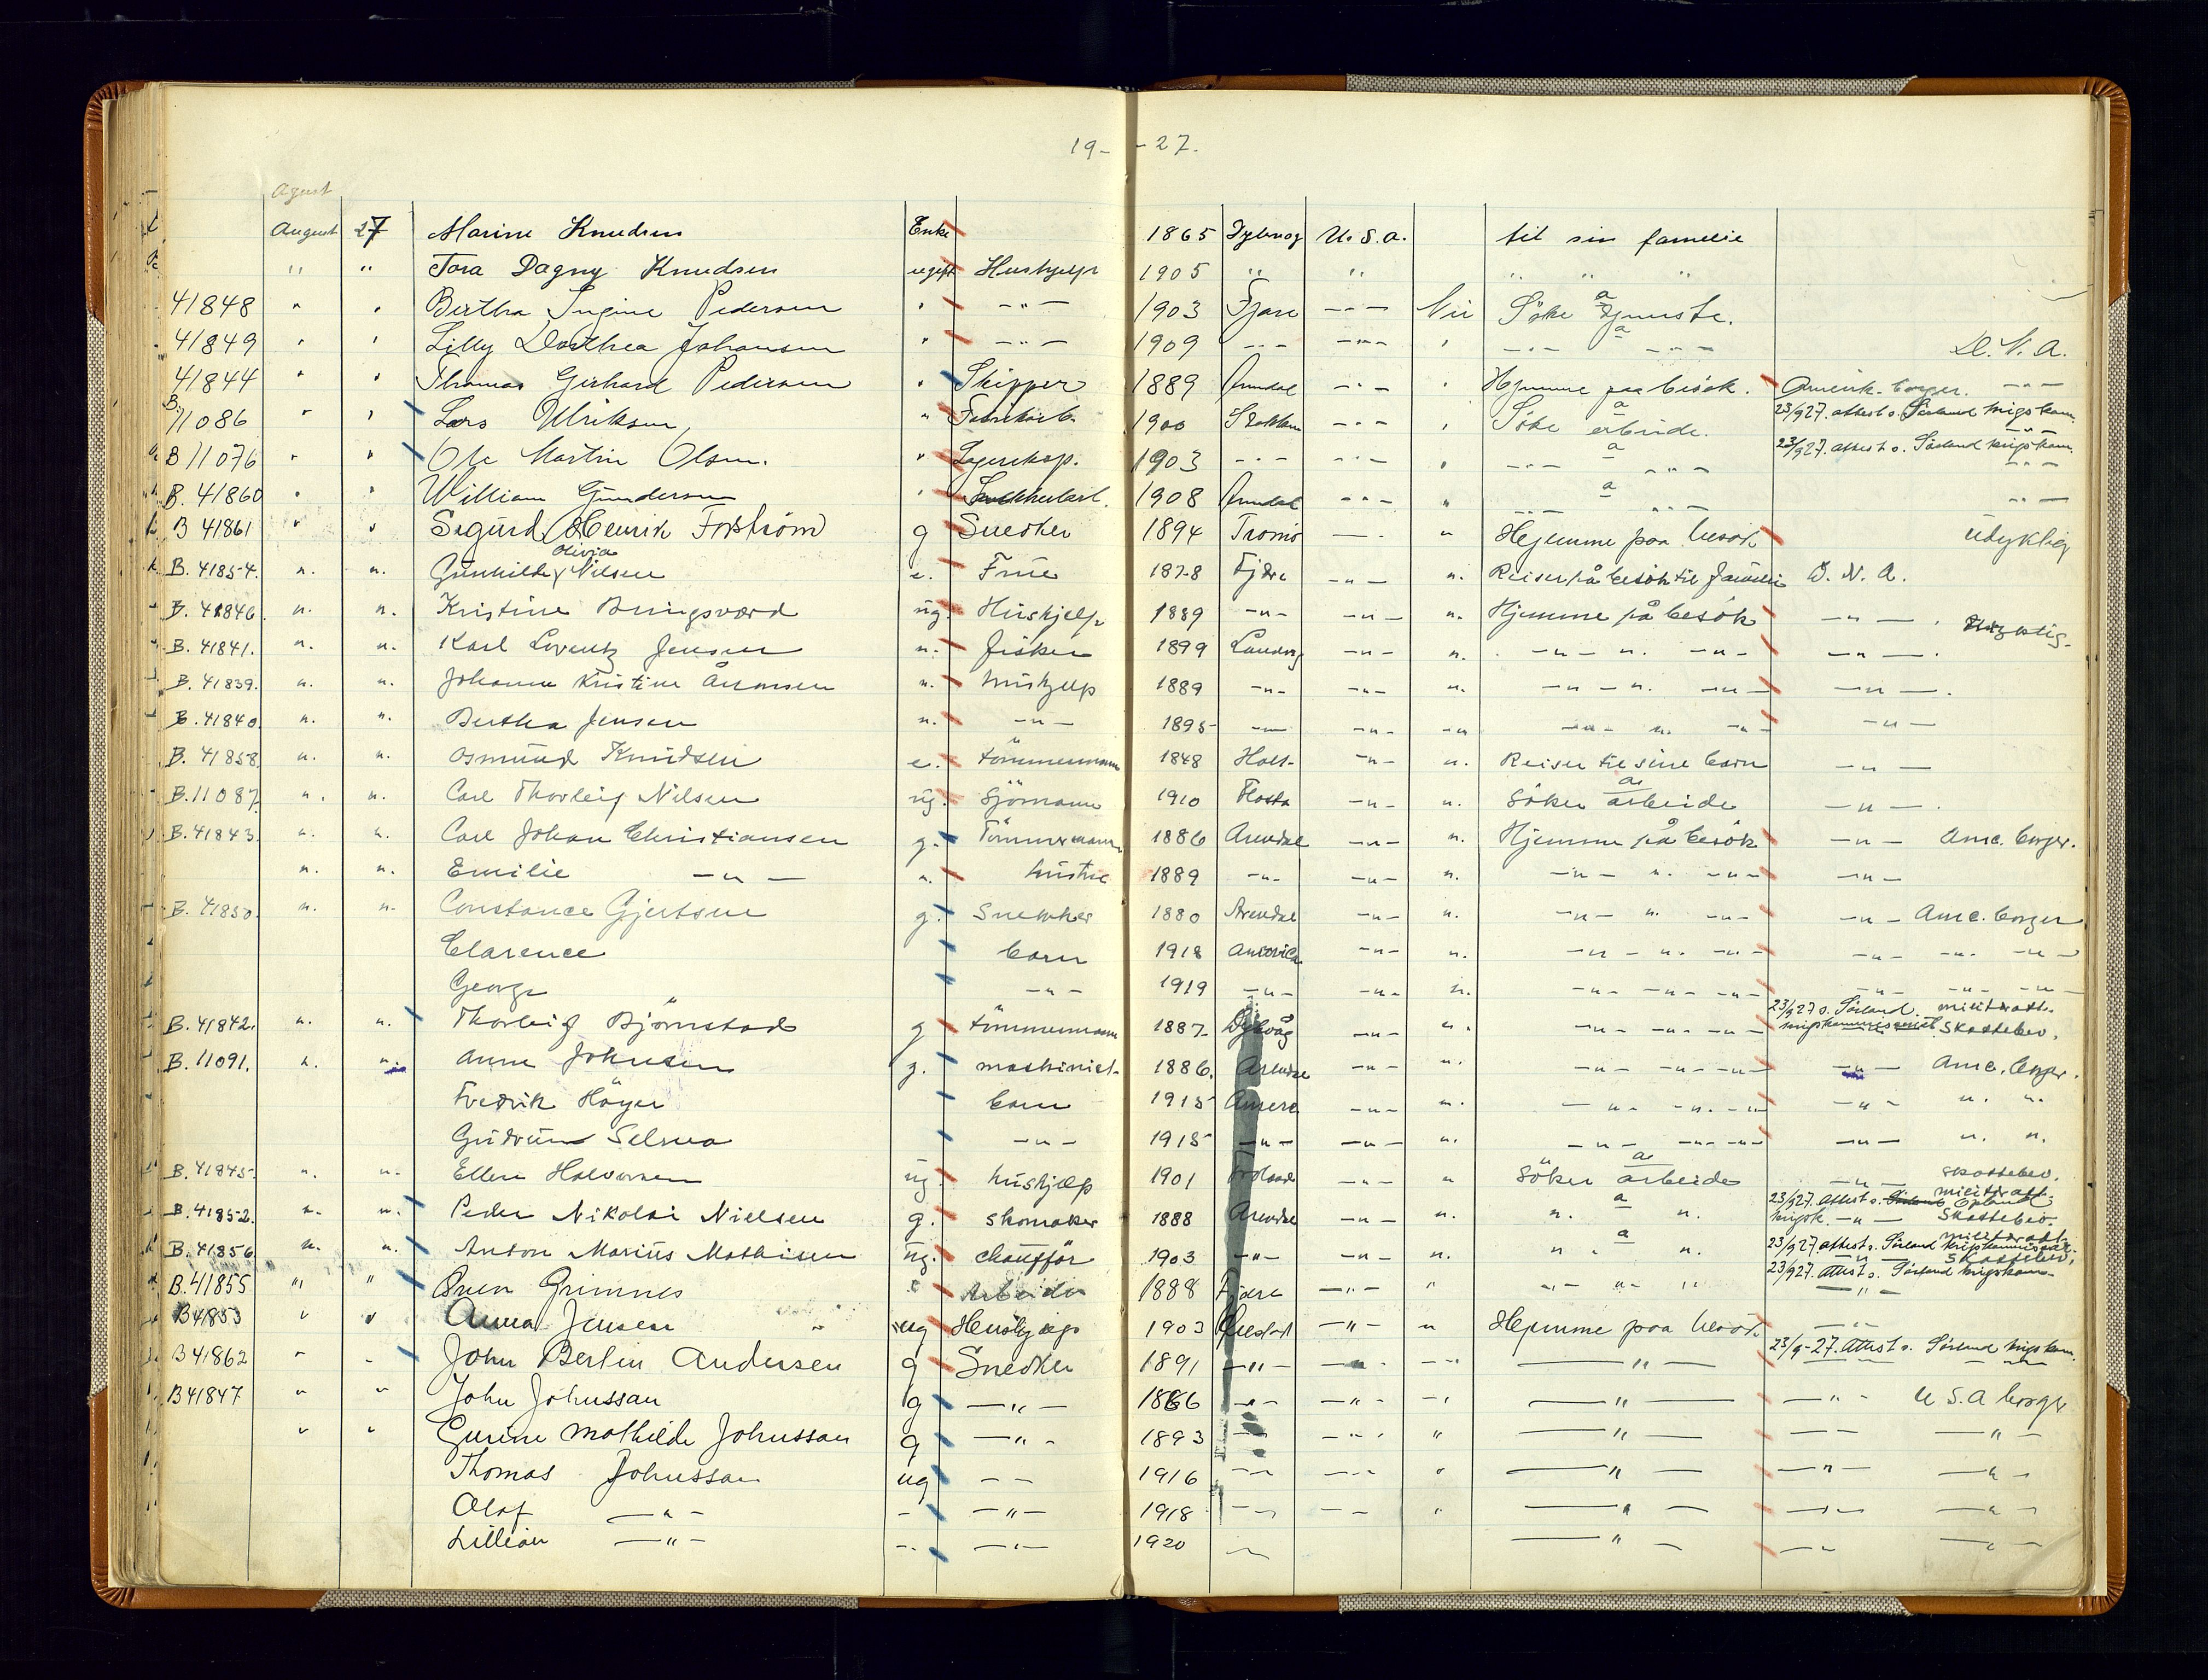 19- -27.
Agust
August 27 Marine Knudsen Enke 1865 Dybvog U.S.A. til sin familie
" " Tora Dagny Knudsen ugift Hushjelp 1905 " " " " "
41848 " " Bertha Ingine Pedersen " -"- 1903 Fjære -"- Nei Söke tjeneste. a
41849 " " Lilly Dorthea Johansen " -"- 1909 -"- -"- " -"- a -"- D. N. A.
41844 " " Thomas Gerhard Pedersen " Skipper 1889 Arendal -"- " Hjemme paa besök. Amerik. borger. -"-
B. 11086 " " Lars Ulriksen " Fabrikarb. 1900 Stokken -"- " Söke arbeide. a 23/9 27. attest o. Sörland krigskom. -"-
B 11076 " " Ole Martin Olsen. " Lagereksp. 1903 -"- -"- " -"- a -"- 23/9 27. attest o. Sörland krigskom. -"-
B. 41860 " " William Gundersen " 1908 Arendal -"- " -"- a -"- -"-
B 41861 " " Sigurd Henrik Forström g Snedker 1894 Tromö -"- " Hjemme paa besök udyktig
B. 41854. " " Gunhilde Olivia Nilsen e. Frue 1878 Fjære -"- " Reiser på besök til familie D. N. A.
B. 41846 " " Kristine Bringsværd ug. Hushjelp 1889 -"- -"- " Hjemme på besök -"-
B. 41841. " " Karl Lorentz Jensen " fisker 1899 Landvig -"- " -"- " -"- -"-
B. 41839. " " Johanne Kristine Aronsen " hushjelp 1889 -"- -"- " -"- " -"- -"-
B. 41840. " " Bertha Jensen " -"- 1895 -"- -"- -"- -"- " -"- -"-
B. 41858. " " Osmund Knudsen e. tömmermann 1848 Holt -"- " Reiser til sine barn -"-
B. 11087. " " Carl Thorleif Nilsen ug. Sjömann 1910 Flosta -"- " Söker arbeide a -"-
B. 41843. " " Carl Johan Christiansen g. Tömmermann 1886 Arendal -"- " Hjemme på besök -"- Ame. borger.
" " Emilie -"- " hustru 1889 -"- -"- " -"- " -"- -"-
B. 41850. " " Constance Gjertsen g. Snekker 1880 Arendal -"- " -"- " -"- -"- Ame. borger
Clarence barn 1918 Amerika -"- " -"- " -"- -"- -"- -"-
George -"- 1919 -"- -"- " -"- -"- -"- -"- -"- -"-
B. 41842. " " Thorleif Björnstad g tömmermann 1887 Dybvåg -"- " -"- -"- -"- 23/9 27 o. Sörland. krigskommissariat militæratt. skattebev.
B. 11091. " " Arne Johnsen g. maskinist 1886. Arendal -"- " -"- -"- -"- -"- Ame. borger.
Fredrik Höyer barn 1915 Amera -"- " -"- -"- -"- -"- " "
Gudrun Selma -"- 1915 -"- -"- " -"- -"- -"- -"- " "
B. 41845. " " Ellen Halvorsen ug. hushjelp 1901 Froland -"- " Söker arbeide a -"- skattebev.
B. 41852. " " Peder Nikolai Nielsen g. skomaker 1888 Arendal -"- " " a " 23/9 27. Attest o. Opland krigsk. -"- militæratt. skattebev.
B. 41856. " " Anton Marius Mathisen ug. chaufför 1903 -"- -"- " " a " 23/9 27. attest o. Sörland krigskommissar. -"- militæratt. skattebev.
B. 41855 " " Sven Grimnes " Arbeider 1888 Fjære -"- " -"- -"- " 23/9 27. Attest o. Sörland krigskom. -"-
B 41853 " " Anna Jensen ug Hushjelp 1903 -"- " Hjemme paa besök -"-
B 41862 " " John Bertin Andersen g Snedker 1891 -"- -"- -"- -"- 23/9-27. Attest o. Sörland krigskom.
B 41847 " " John Johnssan g -"- 1886 -"- -"- -"- -"- -"- U S. A borger
" " Gurine Mathilde Johnssan g -"- 1893 -"- -"- " -"- -"- -"-
Thomas Johnssan ug -"- 1916 -"- -"- " -"- -"- -"-
Olaf -"- - -"- 1918 -"- -"- " -"- -"- -"-
Lillian -"- - -"- 1920 -"- -"- -"- -"-